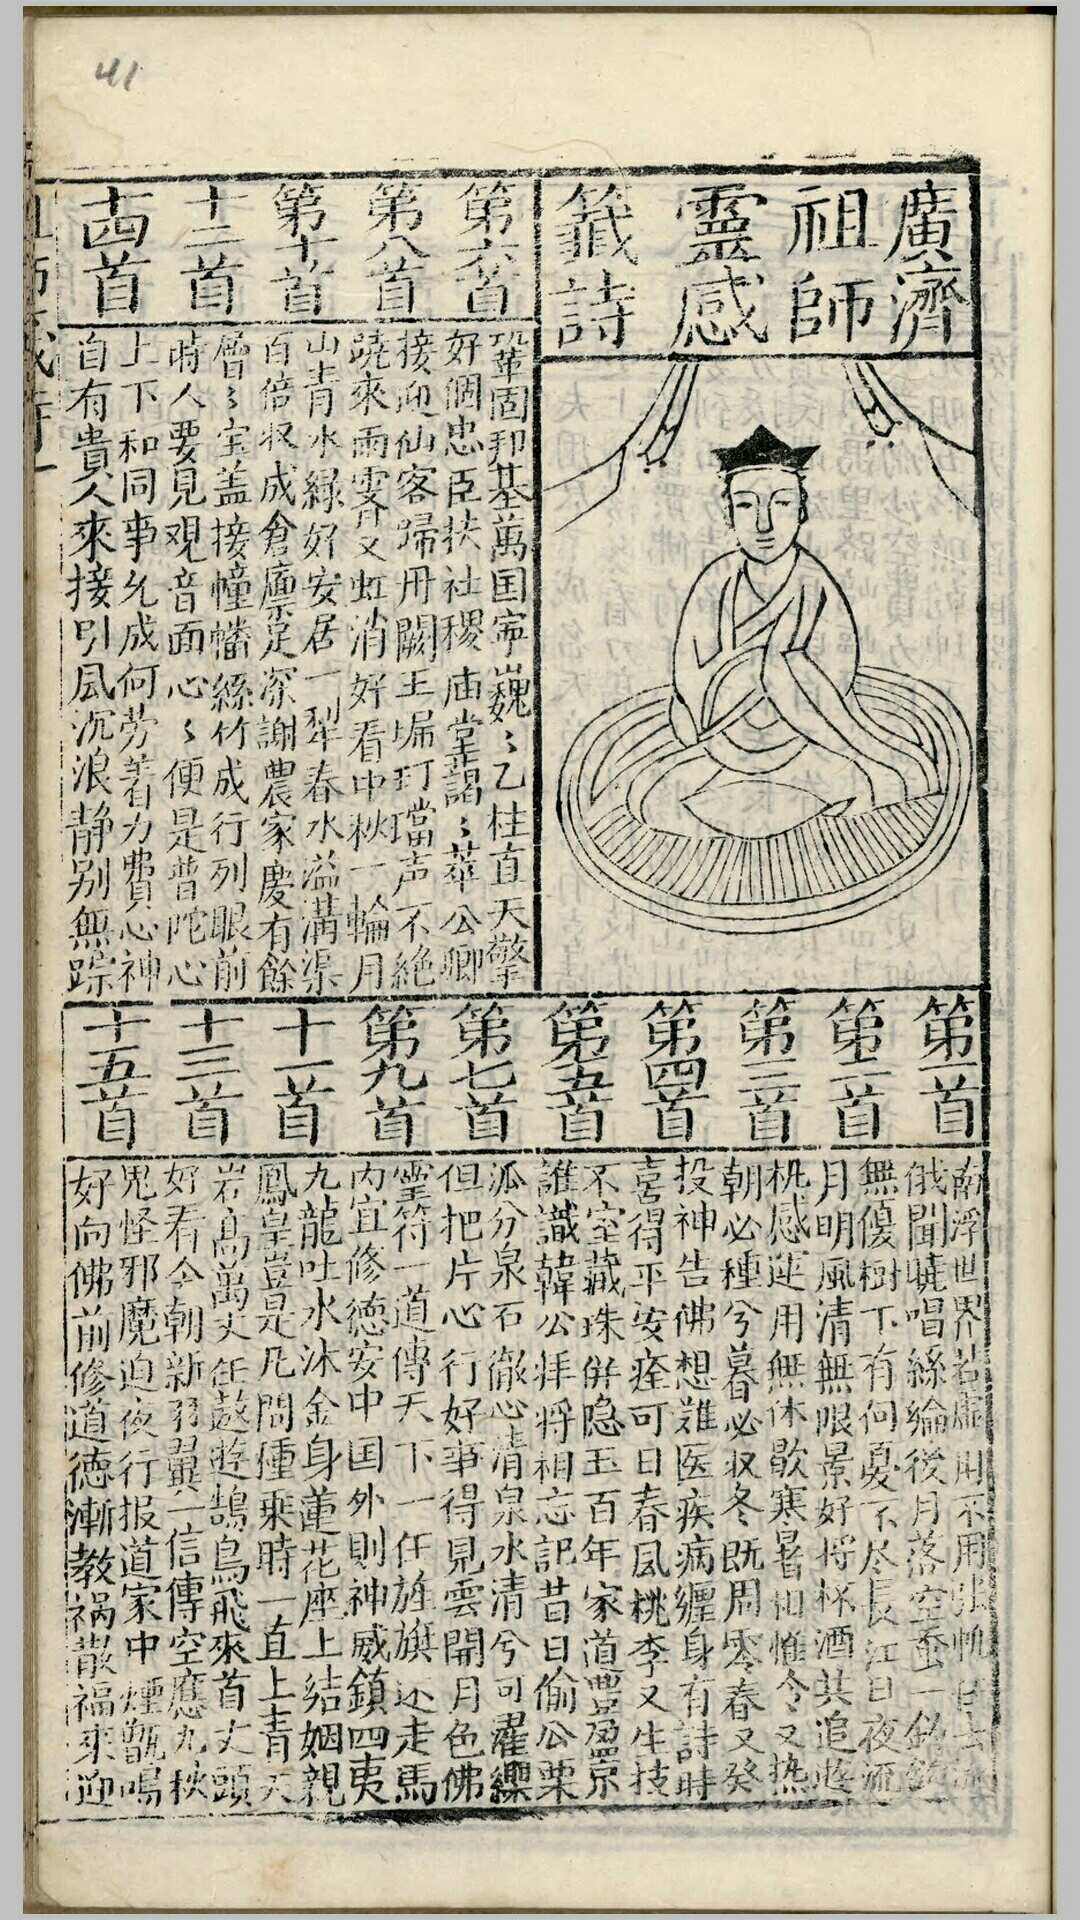 41
廣濟
祖師
靈感
籤詩
第六首
第八首
第十首
十二首
十四首
鞏固邦基萬国寧巍〻乙柱直天擎
好個忠臣扶社稷庙堂謁〻萃公卿
接迎仙客歸丹闕玉珮玎璫声不絶
曉來雨霽又虹消好看中秋一輪月
山青水綠好安居一犁春水溢溝渠
百倍収成倉廩足深謝農家慶有餘
層〻宝盖接幢幡絲竹成行列眼前
時人要見观音面心〻便是普陀心
上下和同事允成何劳着力費心神
自有貴人來接引風沉浪静别無踪
第一首
第二首
第三首
第四首
第五首
第七首
第九首
十一首
十三首
十五首
南浮世界若虛舟不用張帆自去流
俄聞曉唱絲綸後月落空垂一釣鈎
無優樹下有何憂不尽長江日夜流
月明風清無限景好将杯酒共追遊
机感运用無休歇寒暑相惟今又热
朝必種兮暮必収冬既周零春又發
投神告佛想难医疾病纏身有詩時
喜得平安痊可日春風桃李又生技
不室藏珠併隐玉百年家道豊盈
誰識韓公拝将相忘記昔日偷公栗
派分泉石徹心清泉水清兮可濯纓
但把片心行好事得見雲開月色佛
靈符一道傳天下一任旌旗还走馬
内宜修德安中国外則神威鎮四夷
九龍吐水沐金身蓮花座上結姻親
鳳皇豈是凡間種乘時一直上青天
岩高萬丈任遨遊鵲鳥飛來首丈頭
好看今朝新羽翼一信傳空應九秋
鬼怪邪魔迫夜行报道家中煙甑鳴
好向佛前修道德漸教祸散福來迎